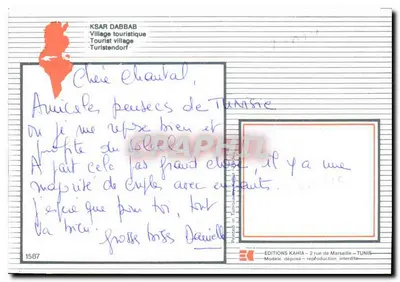 KSAR DABBAB
Village touristique
Tourist village
Turistendorf
Chère Chantal,
Amicales pensées de TUNISIE
où je me repose bien et
profite du soleil.
A part cela pas grand chose, il y a une
majorité de couples avec enfants.
J'espère que pour toi, tout
va bien. Grosses bises Danielle
1587
EDITIONS KAHIA - 2 rue de Marseille - TUNIS
Modèle déposé - reproduction interdite